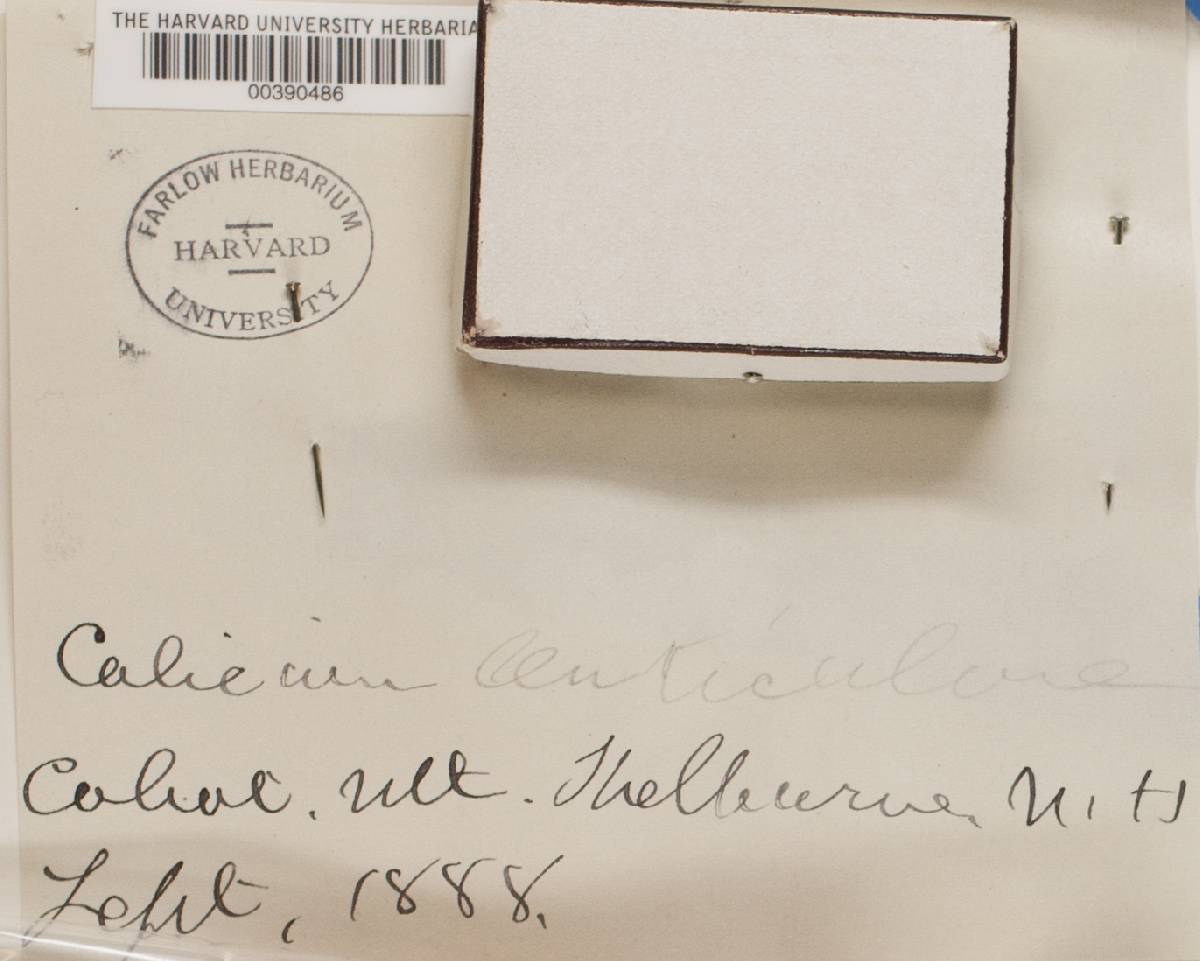 THE HARVARD UNIVERSITY HERBARIA
00390486
FARLOW HERBARIUM
HARVARD
UNIVERSITY
Calicium lenticulare
Mt. Shelburne. N. H
Sept, 1888.